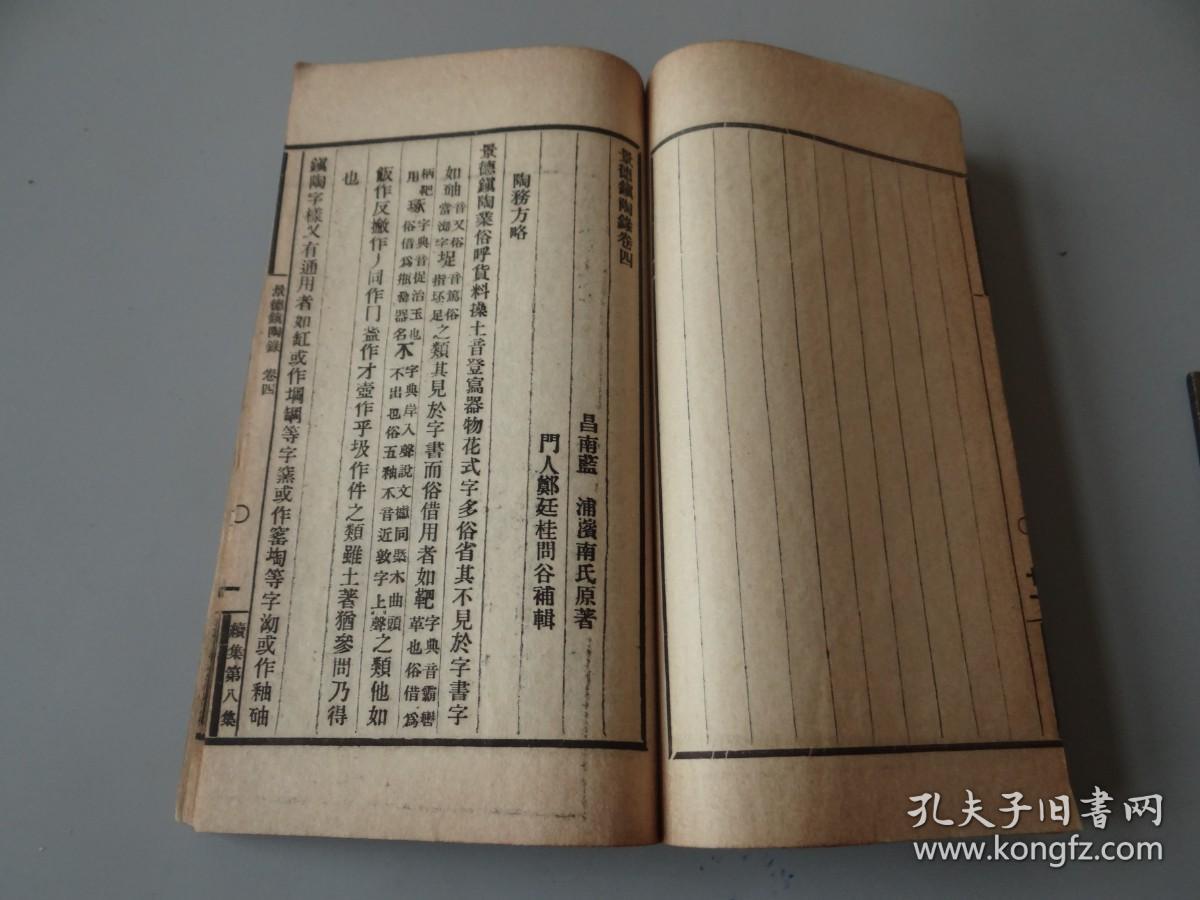 景德鎮陶錄卷四
昌南藍 浦濱南氏原著
門人鄭廷桂問谷補輯
陶務方略
景德鎮陶業俗呼貨料操土音登寫器物花式字多俗省其不見於字書字
如䂇音又俗當泑字堽音篤俗指坯足之類其見於字書而俗借用者如靶字典音霸轡革也俗借爲
柄靶用琢字典音捉治玉也俗借爲瓶罍器名不字典岸入聲說文㰌同櫱木曲頭不出也俗五釉不音近敦字上聲之類他如
飯作反撇作丿同作冂盖作才壺作乎圾作件之類雖土著猶參問乃得
也
鎮陶字樣又有通用者如缸或作堈鋼等字窯或作窰䧅等字泑或作釉䂇
景德鎮陶錄 卷四
一
續集第八集
孔夫子旧书网
www.kongfz.com